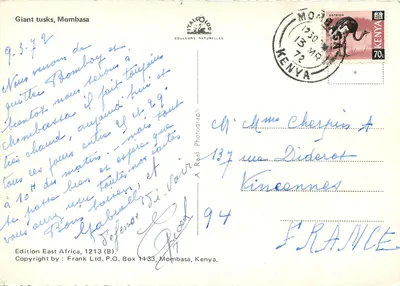 Giant tusks, Mombasa
ITALCOLOR
COULEURS NATURELLES
9.3.72
Nous venons de
quitter Bombay et
bientôt nous serons à
Mombassa il fait toujours
très chaud, aujourd'hui et
tous ces jours entre 28 et 29°
à 10H du matin. mais tout
se passe bien et espère que
vous aussi toutes nos
Bons baisers
Gabriel
défense d'ivoire
MOMBASA
1230
13 MR
72
KENYA
KENYA
70c
A Real Photograph
M. Mme Cherpin
137 rue Diderot
Vincennes
94
FRANCE
Edition East Africa, 1213 (B)
Copyright by : Frank Ltd. P.O. Box 1133, Mombasa, Kenya,